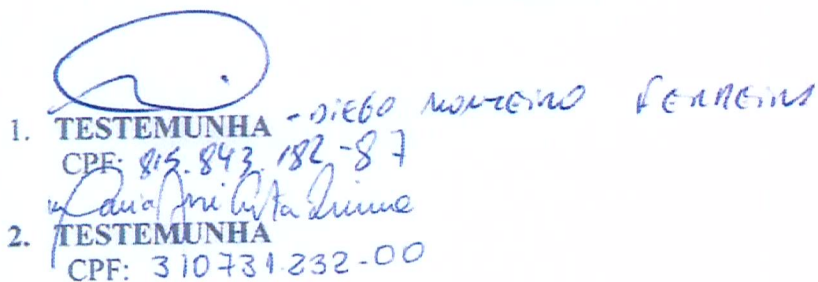 1. TESTEMUNHA - DIEGO MONTEIRO FERREIRA
CPF: 815.843.182-87
Maria José
2. TESTEMUNHA
CPF: 310731.232-00